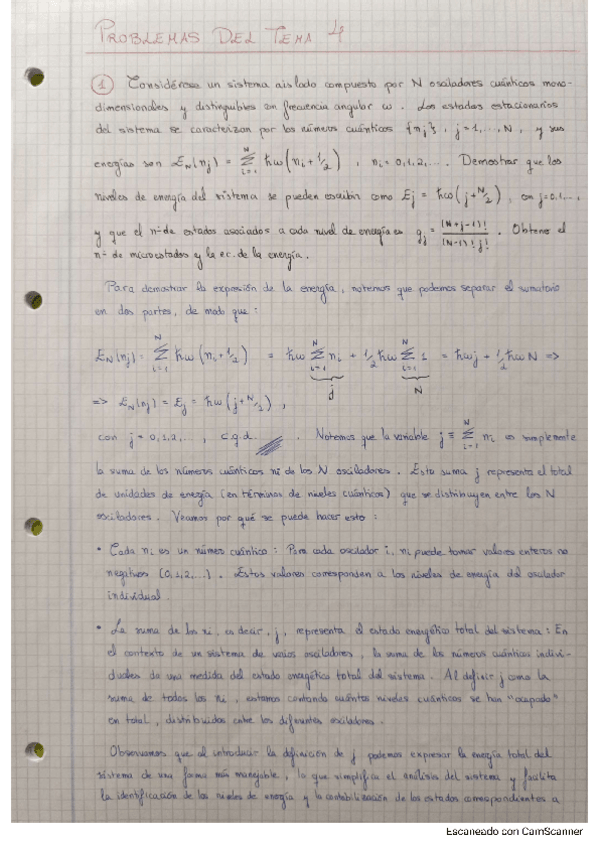 PROBLEMAS DEL TEMA 4
① Considérese un sistema aislado compuesto por N osciladores cuánticos mono-
dimensionales y distinguibles con frecuencia angular ω. Los estados estacionarios
del sistema se caracterizan por los números cuánticos {nj}, j=1,...,N, y sus
energías son EN(nj) = Σ(i=1→N) ħω(ni+1/2), ni=0,1,2,... Demostrar que los
niveles de energía del sistema se pueden escribir como Ej = ħω(j+N/2), con j=0,1,...,
y que el nº de estados asociados a cada nivel de energía es gj = (N+j-1)!/(N-1)!j!. Obtener el
nº de microestados y la ec. de la energía.
Para demostrar la expresión de la energía, notemos que podemos separar el sumatorio
en dos partes, de modo que:
EN(nj) = Σ(i=1→N) ħω(ni+1/2) = ħω Σ(i=1→N) ni + 1/2 ħω Σ(i=1→N) 1 = ħωj + 1/2 ħωN =>
j N
=> EN(nj) = Ej = ħω(j+N/2),
con j=0,1,2,..., c.q.d. Notemos que la variable j ≡ Σ(i=1→N) ni es simplemente
la suma de los números cuánticos ni de los N osciladores. Esta suma j representa el total
de unidades de energía (en términos de niveles cuánticos) que se distribuyen entre los N
osciladores. Veamos por qué se puede hacer esto:
• Cada ni es un número cuántico: Para cada oscilador i, ni puede tomar valores enteros no
negativos (0,1,2,...). Estos valores corresponden a los niveles de energía del oscilador
individual.
• La suma de los ni, es decir, j, representa el estado energético total del sistema: En
el contexto de un sistema de varios osciladores, la suma de los números cuánticos indivi-
duales da una medida del estado energético total del sistema. Al definir j como la
suma de todos los ni, estamos contando cuántos niveles cuánticos se han "ocupado"
en total, distribuidos entre los diferentes osciladores.
Observamos que al introducir la definición de j podemos expresar la energía total del
sistema de una forma más manejable, lo que simplifica el análisis del sistema y facilita
la identificación de los niveles de energía y la contabilización de los estados correspondientes a
Escaneado con CamScanner